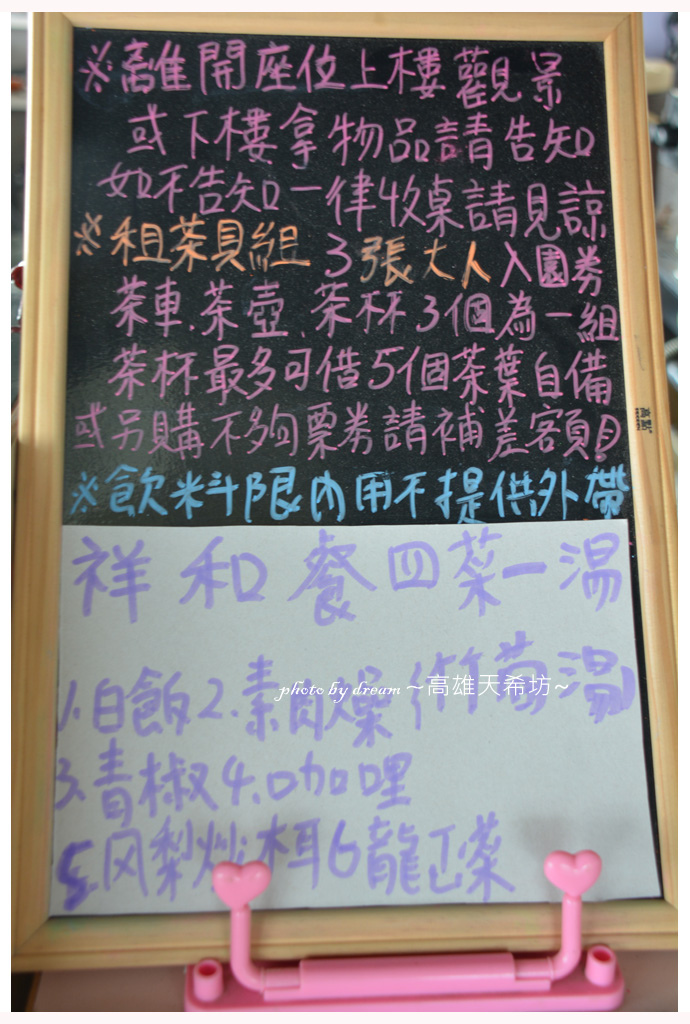 ※離開座位上樓觀景
或下樓拿物品請告知
如不告知一律收桌請見諒
※租茶具組3張大人入園券
茶車、茶壺、茶杯3個為一組
茶杯最多可借5個茶葉自備
或另購不夠票券請補差額!
※飲料限內用不提供外帶
祥和餐四菜一湯
1.白飯2.素肉燥 竹筍湯
photo by dream ~高雄天希坊~
3.青椒4.咖哩
5.风梨炒木耳6龍江菜